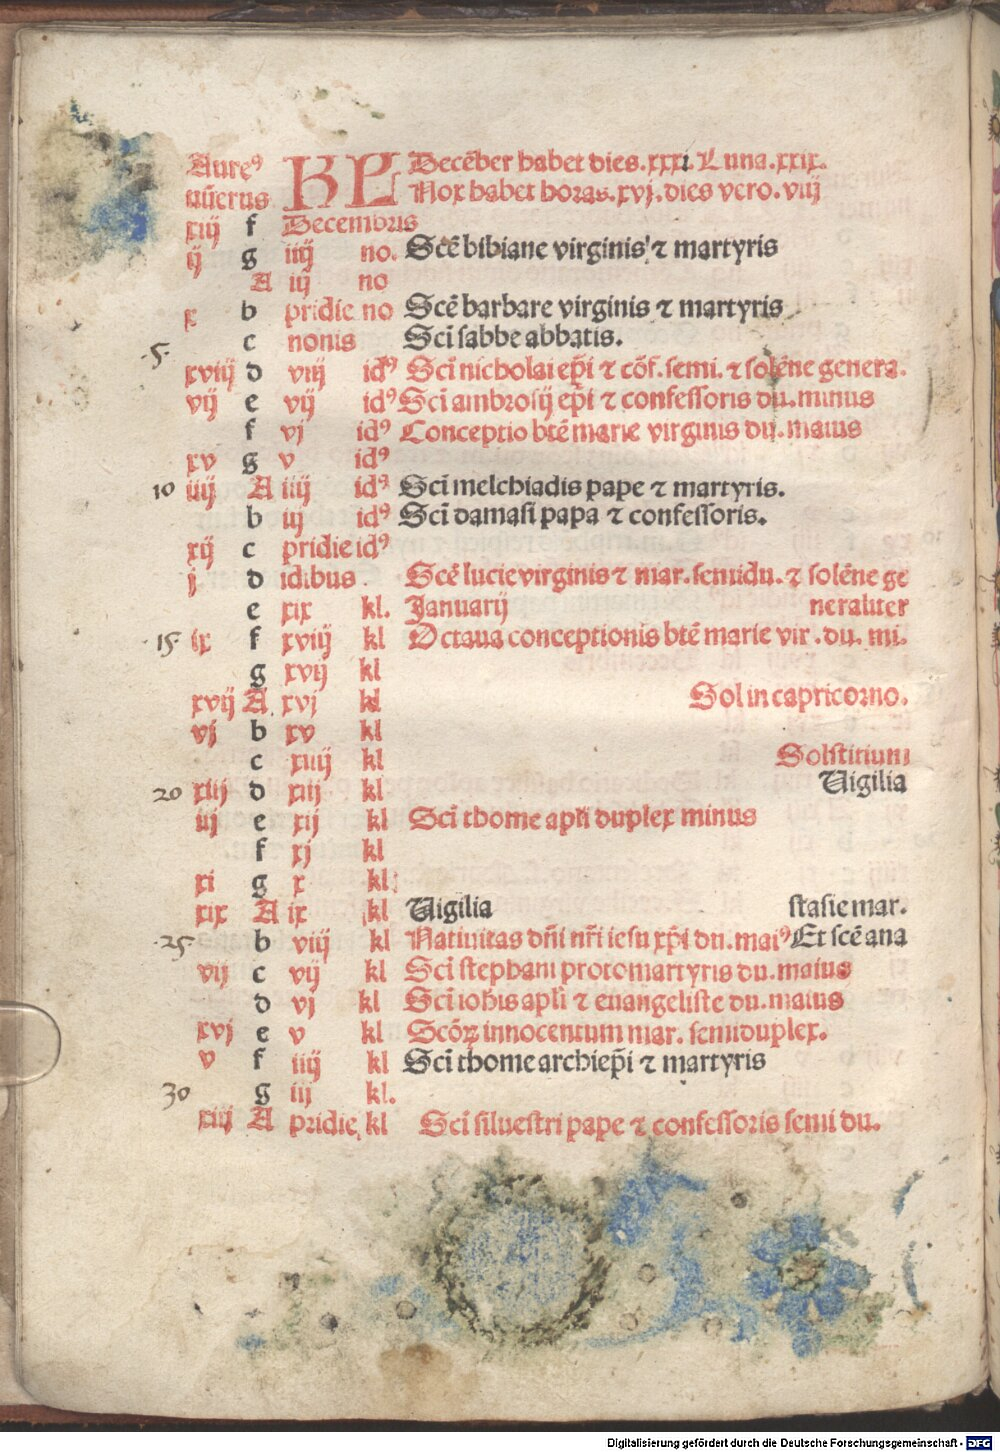 Aure⁹ KL Decēber habet dies.xxxi.Luna.xxix.
nūerus Nox habet horas.xvj.dies vero.viij
xiij f Decembris
ij g iiij no. Scē bibiane virginis ⁊ martyris
A iij no
x b pridie no Scē barbare virginis ⁊ martyris
5 c nonis Sci sabbe abbatis.
xviij d viij id⁹ Sci nicholai ep̄i ⁊ cōf.semi.⁊ solēne genera.
vij e vij id⁹ Sci ambrosij ep̄i ⁊ confessoris du.minus
f vj id⁹ Conceptio btē marie virginis du.maius
xv g v id⁹
10 iiij A iiij id⁹ Sci melchiadis pape ⁊ martyris.
b iij id⁹ Sci damasi papa ⁊ confessoris.
xij c pridie id⁹
j d idibus Scē lucie virginis ⁊ mar.semidu.⁊ solēne ge
e xix kl. Januarij neraliter
15 ix f xviij kl Octaua conceptionis btē marie vir.du.mi.
g xvij kl
xvij A xvj kl Sol in capricorno.
vj b xv kl
c xiiij kl Solstitium
20 xiiij d xiij kl Uigilia
iij e xij kl Sci thome apli duplex minus
f xj kl
xi g x kl
xix A ix kl Uigilia stasie mar.
25 b viij kl Natiuitas dn̄i nr̄i iesu xp̄i du.mai⁹ Et scē ana
vij c vij kl Sci stephani protomartyris du.maius
d vj kl Sci iohis apli ⁊ euangeliste du.maius
xvj e v kl Scōꝝ innocentum mar. semiduplex.
v f iiij kl Sci thome archiep̄i ⁊ martyris
30 g iij kl.
xiij A pridie kl Sci siluestri pape ⁊ confessoris semi du.
Digitalisierung gefördert durch die Deutsche Forschungsgemeinschaft - DFG